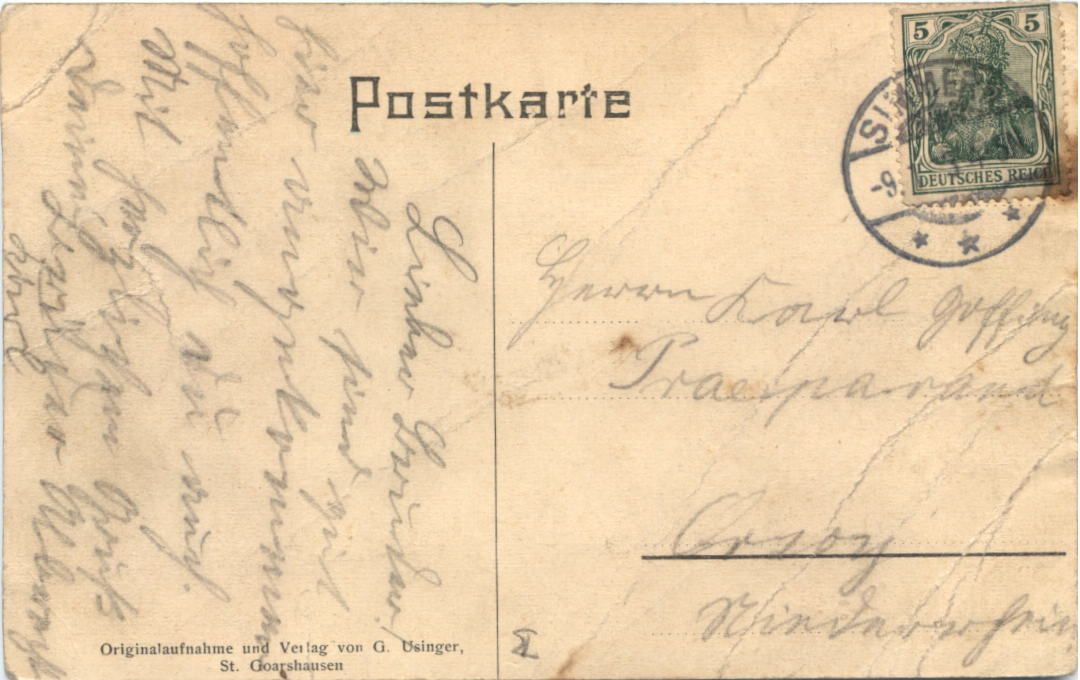 Postkarte
5 5
DEUTSCHES REICH
SIMMERN
-9.
Lieber Bruder!
Wir sind gut
hier angekommen
hoffentlich Du auch.
Mit herzlichem Gruß
Dein
Herrn Karl
Praeparand
Orsoy
Niederrhein
Originalaufnahme und Verlag von G. Usinger,
St. Goarshausen